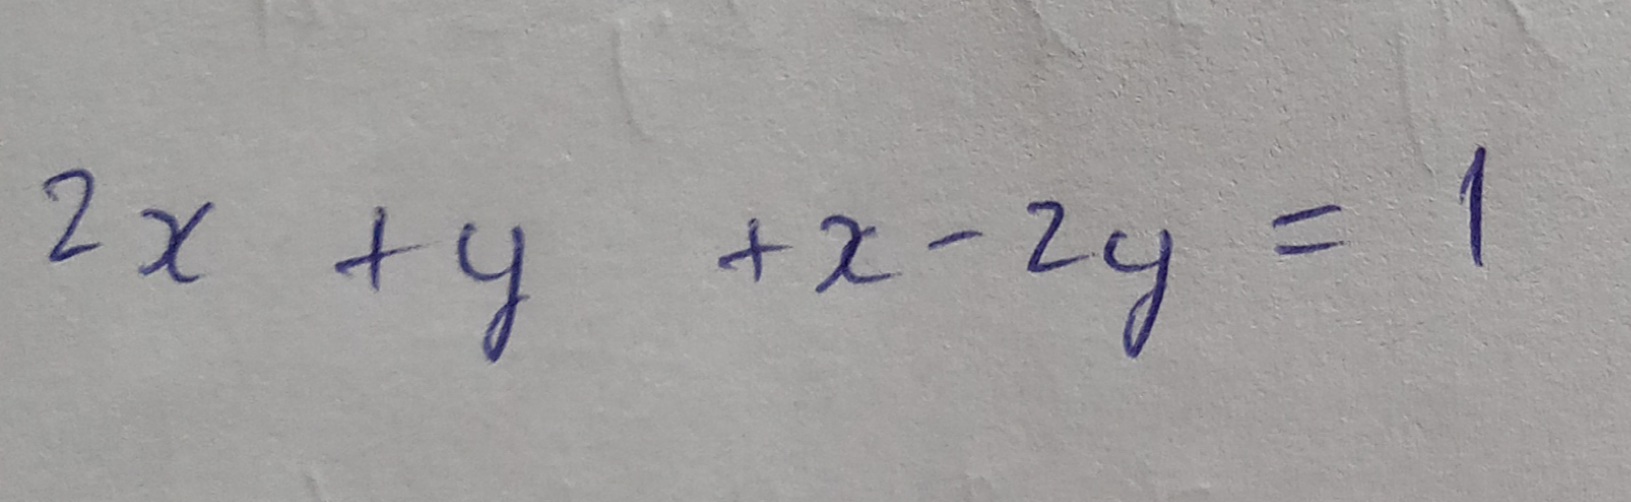 2x + y + x - 2y = 1